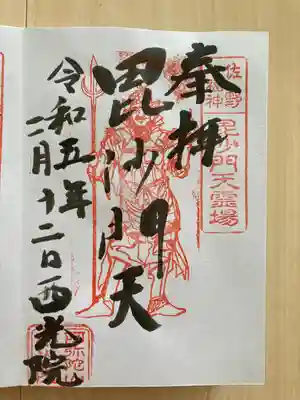 奉拝
佐野
七福神
毘沙門天霊場
毘沙門天
令和五年
二月十二日西光院